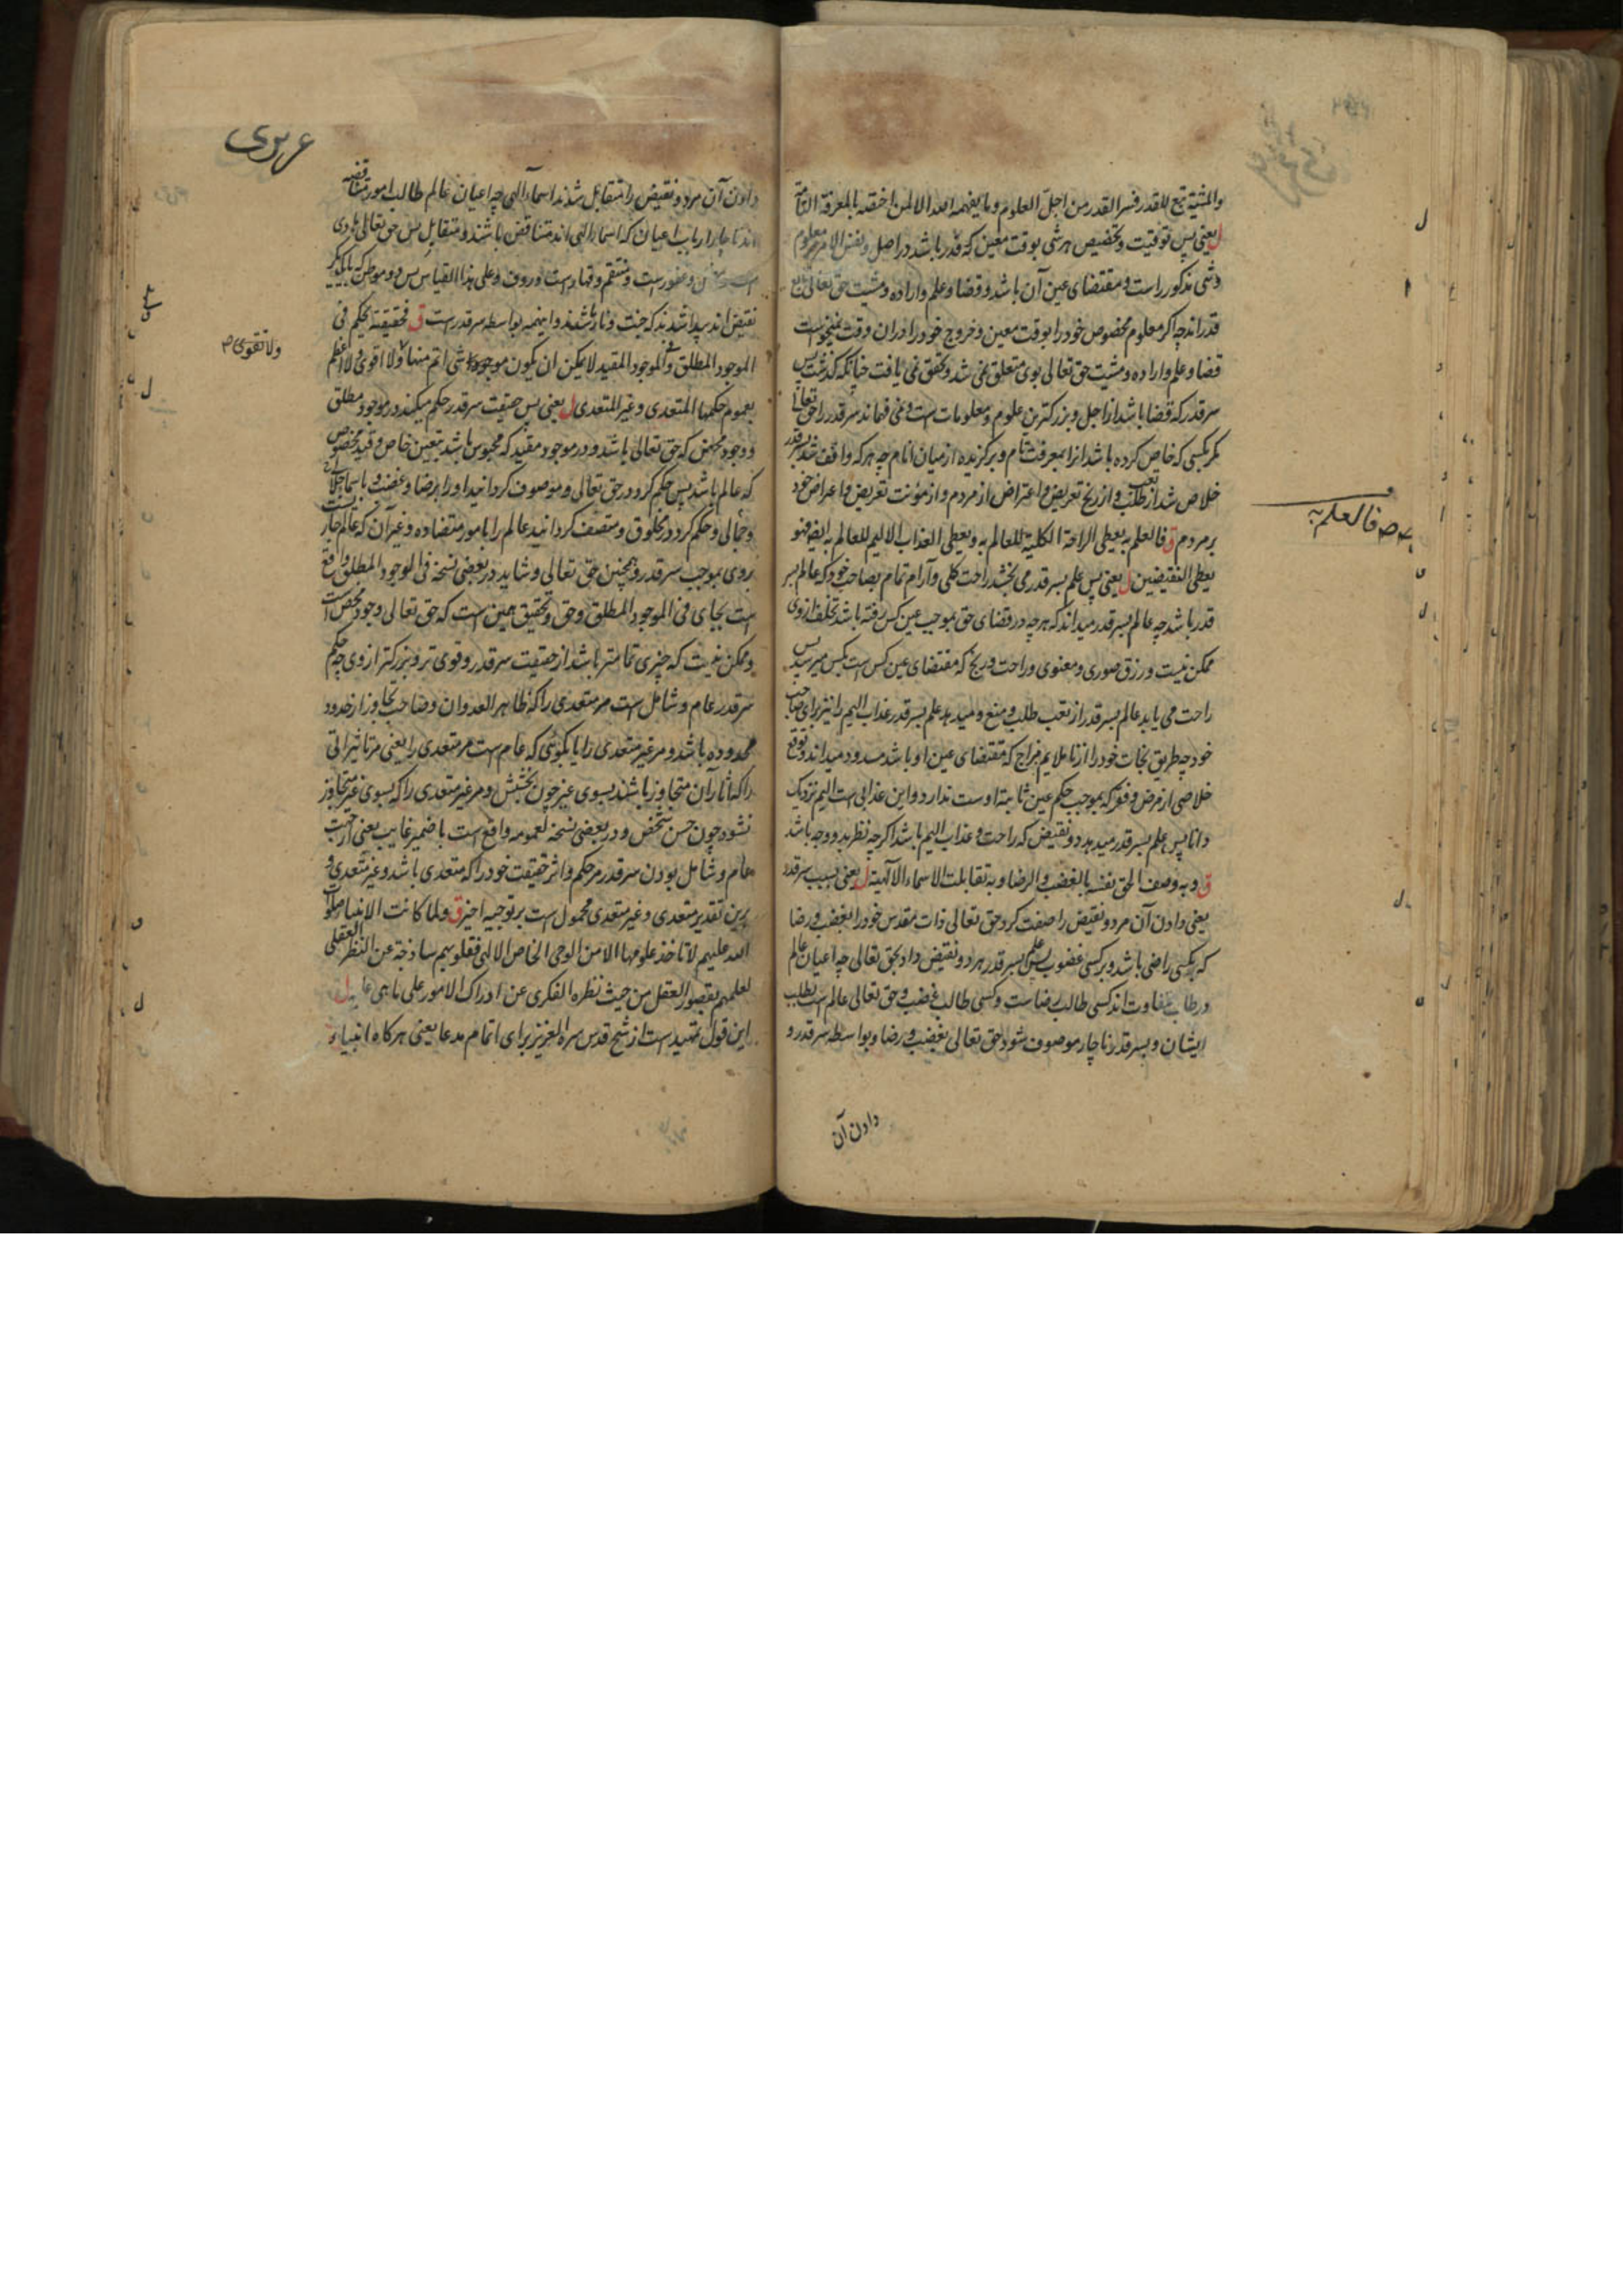 والمشیة تبع للقدر فسر القدر من اجلّ العلوم وما یفهمه الله الا لمن اختصه بالمعرفة التامة
ل یعنی پس توقیت و تخصیص هر شی بوقت معین که قدر باشد در اصل و نفس الامر مر معلوم
و شی مذکور راست و مقتضای عین آن باشد و قضا و علم و اراده و مشیت حق تعالی تابع
قدر اند چه اگر معلوم مخصوص خود را بوقت معین و خروج خود را در آن وقت نمیخواست
قضا و علم و اراده و مشیت حق تعالی بوی متعلق نمی شد و تحقق نمی یافت چنانکه گذشت پس
سر قدر که قضا باشد از اجل و بزرکترین علوم و معلومات است و نمی فهماند سر قدر را حق تعالی
مکر بکسی که خاص کرده باشد او را بمعرفت تام و برکزیده از میان انام چه هر که واقف شد بسر قدر
خلاص شد از تعب طلب و از رنج تعریض و اعتراض از مردم و از مؤنت تعریض و اعراض خود
بر مردم ق فالعلم به یعطی الراحة الکلیة للعالم به و یعطی العذاب الالیم للعالم به ایضا فهو
یعطی النقیضین ل یعنی پس علم بسر قدر می بخشد راحت کلی و آرام تمام بصاحب خود که عالم بسر
قدر باشد چه عالم بسر قدر میداند که هر چه در قضای حق بموجب عین کس رفته باشد تخلف از وی
ممکن نیست و رزق صوری و معنوی و راحت و رنج که مقتضای عین کس است بکس میرسد پس
راحت می یابد عالم بسر قدر از تعب طلب و منع و میدهد علم بسر قدر عذاب الیم را نیز برای صاحب
خود چه طریق نجات خود را از ناملایم مزاج که مقتضای عین او باشد مسدود میداند و توقع
خلاصی از مرض و فقر که بموجب حکم عین ثابته اوست ندارد و این عذابی است الیم نزدیک
دانا پس علم بسر قدر میدهد دو نقیض که راحت و عذاب الیم باشد اگر چه نظر بدو وجه باشد
ق و به وصف الحق نفسه بالغضب و الرضا و به تقابلت الاسماء الالهیة ل یعنی بسبب سر قدر
یعنی دادن آن مر دو نقیض را صفت کرد حق تعالی ذات مقدس خود را بغضب و رضا
که بکسی راضی باشد و بر کسی غضوب پس علم بسر قدر هر دو نقیض داد بحق تعالی چه اعیان عالم
در طلب متفاوت اند کسی طالب رضاست و کسی طالب غضب و حق تعالی عالم است بطلب
ایشان و بسر قدر ناچار موصوف شود حق تعالی بغضب و رضا و بواسطه سر قدر و
دادن آن
فالعلم به
دادن آن مر دو نقیض را متقابل شدند اسماء الهی چه اعیان عالم طالب امور متناقضه
اند ناچار ارباب اعیان که اسماء الهی اند متناقض باشند و متقابل پس حق تعالی هادی
و غفور است و منتقم و قهار است و رؤف و علی هذا القیاس پس دو موطن که با یکدیگر
نقیض اند پیدا شدند که جنت و نار باشند و اینهمه بواسطه سر قدر است ق فحقیقته تحکم فی
الموجود المطلق و فی الموجود المقید لا یمکن ان یکون موجود شی اتم منها و لا اقوی و لا اعظم
بعموم حکمها المتعدی و غیر المتعدی ل یعنی پس حقیقت سر قدر حکم میکند در موجود مطلق
و وجود محض که حق تعالی باشد و در موجود مقید که محبوس باشد بتعین خاص و قید مخصوص
که عالم باشد پس حکم کرد در حق تعالی و موصوف کردانید او را برضا و غضب و باسماء جلالی
و جمالی و حکم کرد در مخلوق و متصف کردانید عالم را بامور متضاده و غیر آن که عالم جاریست
بر وی بموجب سر قدر و همچنین حق تعالی و شاید در بعضی نسخه فی الوجود المطلق واقع
است بجای فی الموجود المطلق و حق و تحقیق همین است که حق تعالی وجود محض است
و ممکن نیست که چیزی تمامتر باشد از حقیقت سر قدر و قوی تر و بزرکتر از وی چه حکم
سر قدر عام و شامل است مر متعدی را که ظاهر العدوان و صاحب تجاوز از حدود
محدوده باشد و مر غیر متعدی را یا بکوئی که عام است مر متعدی را یعنی مر تاثیراتی
را که آثار آن متجاوز باشند بسوی غیر چون بخشش و مر غیر متعدی را که بسوی غیر متجاوز
نشود چون حسن شخص و در بعضی نسخه لعمومه واقع است با ضمیر غایب یعنی از جهت
عام و شامل بودن سر قدر مر حکم و اثر حقیقت خود را که متعدی باشد و غیر متعدی و
برین تقدیر متعدی و غیر متعدی محمول است بر توجیه اخیر ق و لما کانت الانبیاء صلوات
الله علیهم لا تاخذ علومها الا من الوحی الخاص الالهی فقلوبهم ساذجة عن النظر العقلی
لعلمهم بقصور العقل من حیث نظره الفکری عن ادراک الامور علی ما هی علیه ل
این قول تمهید است از شیخ قدس سره العزیز برای اتمام مدعا یعنی هر کاه انبیا
ولا تقوی